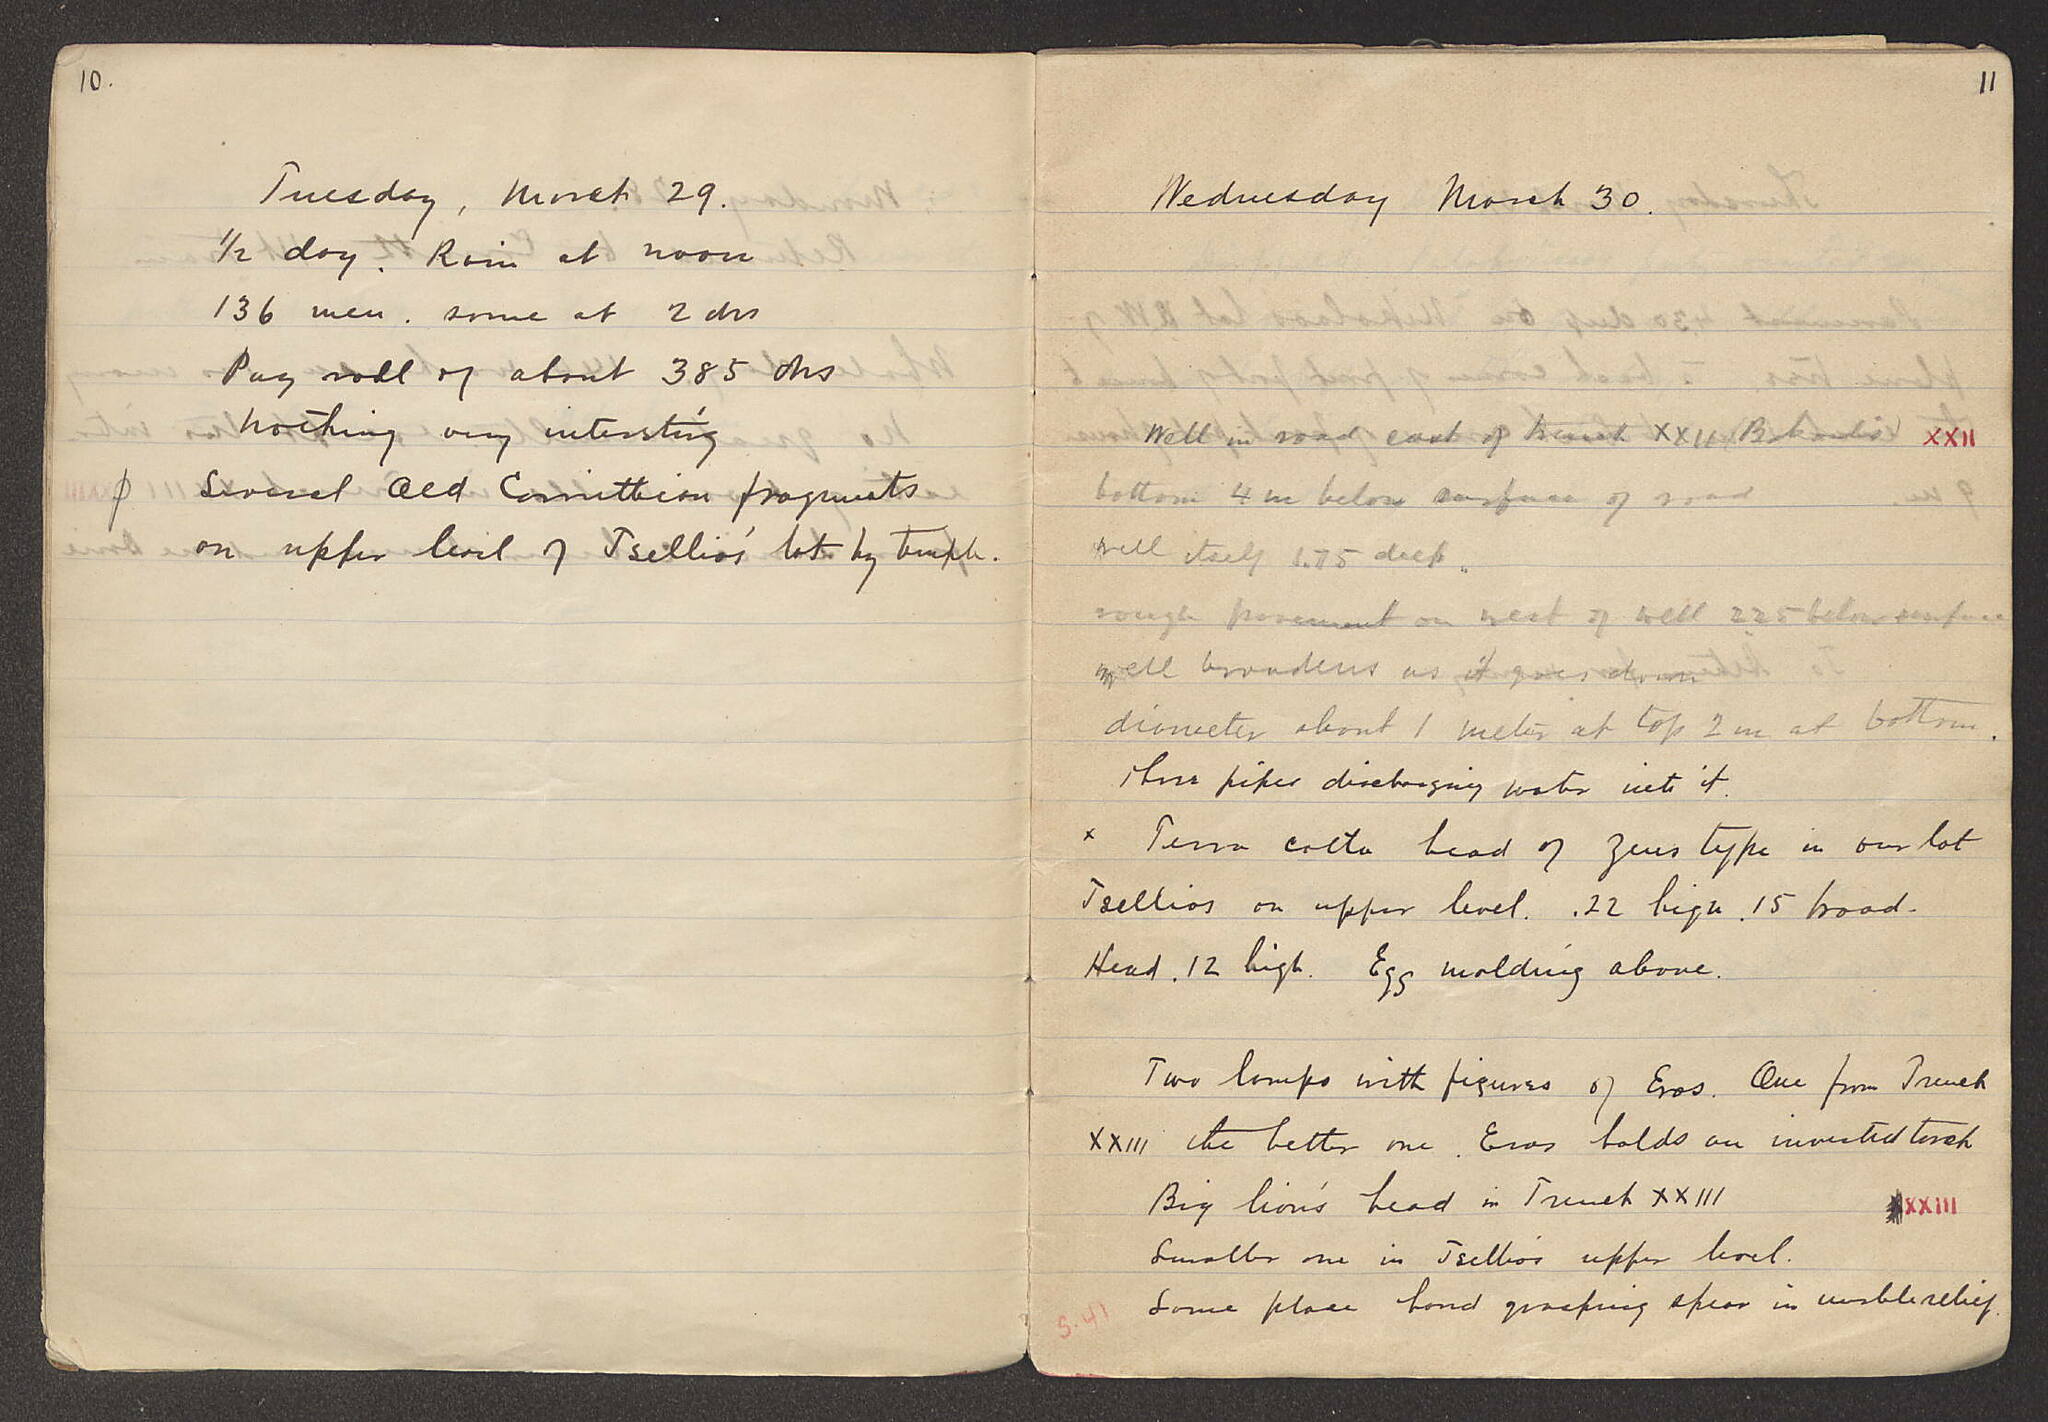 10.
Tuesday, March 29.
1/2 day. Rain at noon
136 men. some at 2 drs
Pay roll of about 385 drs
Nothing very interesting
φ Several Old Corinthian fragments
on upper level of Tsellios' lot by temple.
11
Wednesday March 30.
Well in road east of trench XXII, XXII
bottom 4 m below surface of road
well itself 1.75 deep.
rough pavement on west of well 2.25 below surface
well broadens as it goes down
diameter about 1 meter at top 2 m at bottom.
three pipes discharging water into it.
x Terra cotta head of Zeus type in our lot
Tsellios on upper level. .22 high .15 broad.
Head .12 high. Egg molding above.
Two lamps with figures of Eros. One from Trench
XXIII the better one. Eros holds an inverted torch
Big lion's head in Trench XXIII XXIII
Smaller one in Tsellios upper level.
S.41 Same place hand grasping spear in marble relief.